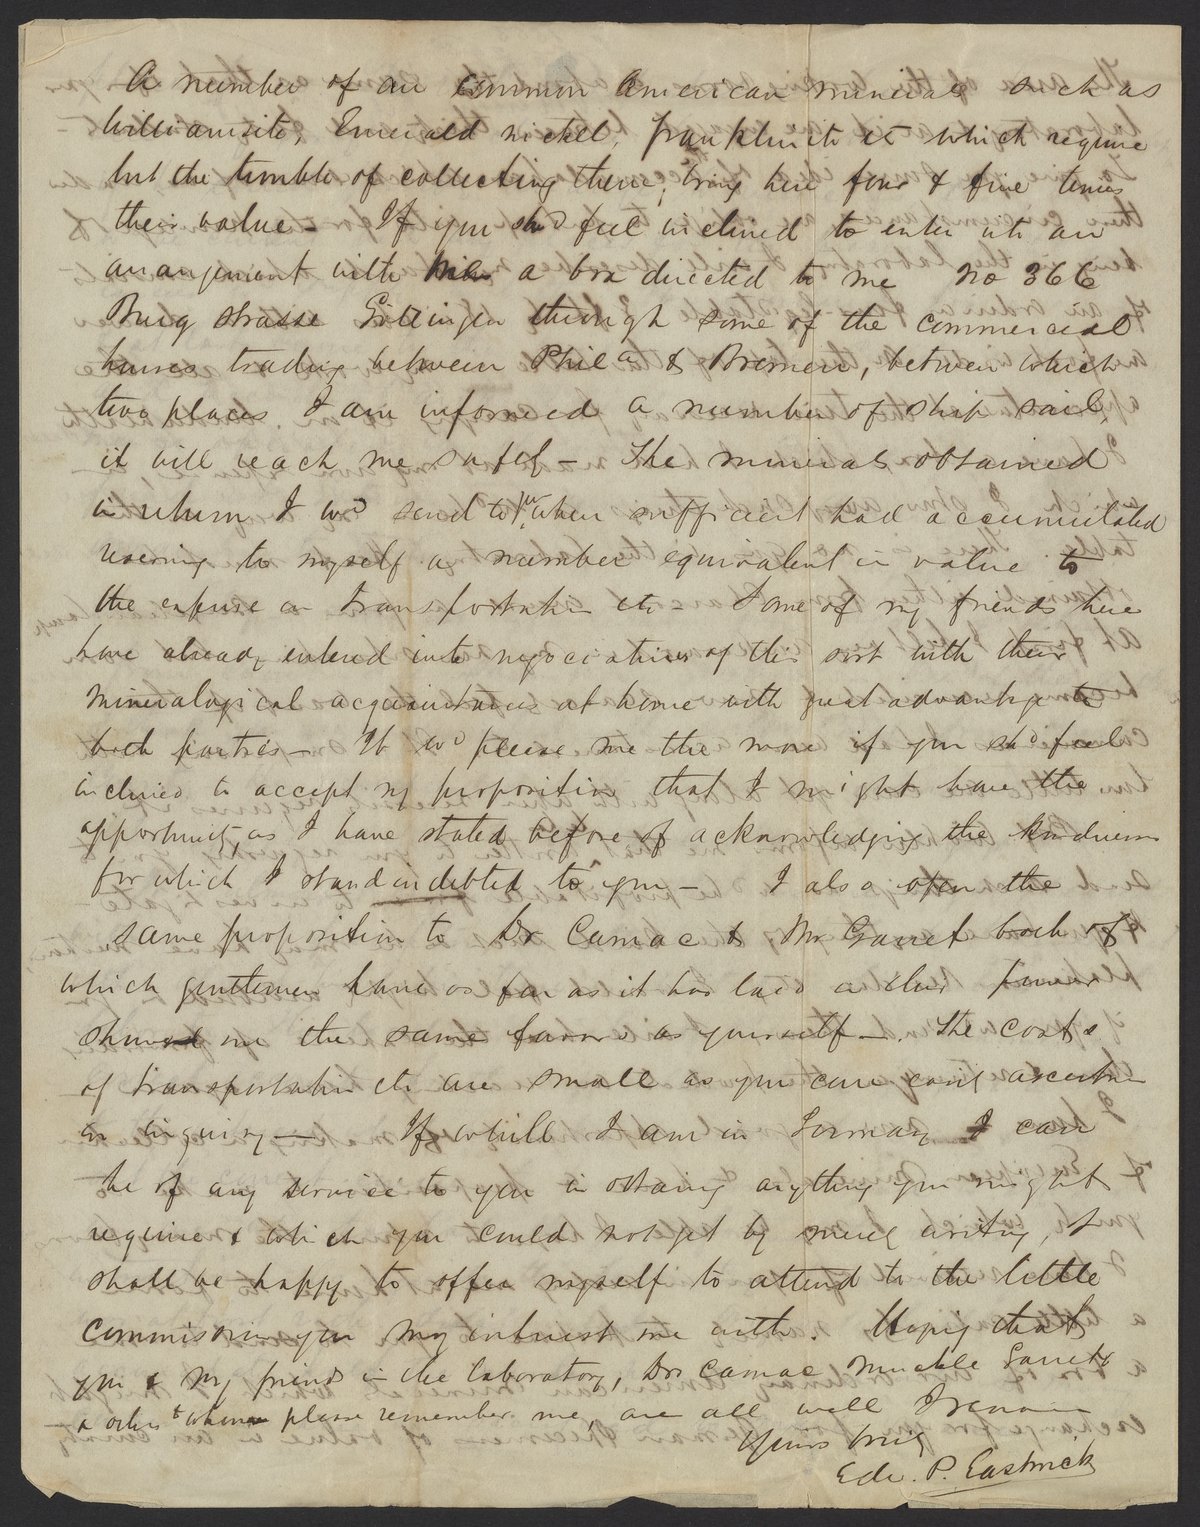 A number of our common American minerals such as
Williamsite, Emerald nickel, franklinite etc which require
but the trouble of collecting them, bring here four & five times
their value — If you shd feel inclined to enter into an
arrangement with me a box directed to me No 366
Burg strasse Göttingen through some of the commercial
houses trading between Phila & Bremen, between which
two places I am informed a number of ship sail,
it will reach me safely — The minerals obtained
in return I wd send to you when sufficient had accumulated
reserving to myself a number equivalent in value to
the expense on transportation etc — Some of my friends here
have already entered into negociations of this sort with their
mineralogical acquaintances at home with great advantage to
both parties — It wd please me the more if you shd feel
inclined to accept my proposition that I might have the
opportunity, as I have stated before of acknowledging the kindness
for which I stand indebted to you — I also open the
same proposition to Dr Camac & Mr Garret both of
which gentlemen have as far as it has laid in their power
showed me the same favors as yourself —. The costs
of transportation etc are small as you can easily ascertain
on inquiry — If while I am in Germany I can
be of any service to you in obtaining anything you might
require & which you could not get by merely writing, I
shall be happy to offer myself to attend to the little
commissions you may intrust me with. Hoping that
you & my friends in the laboratory, Dr Camac Garret
& others to whom please remember me, are all well I remain
Yours truly
Edw. P. Eastwick